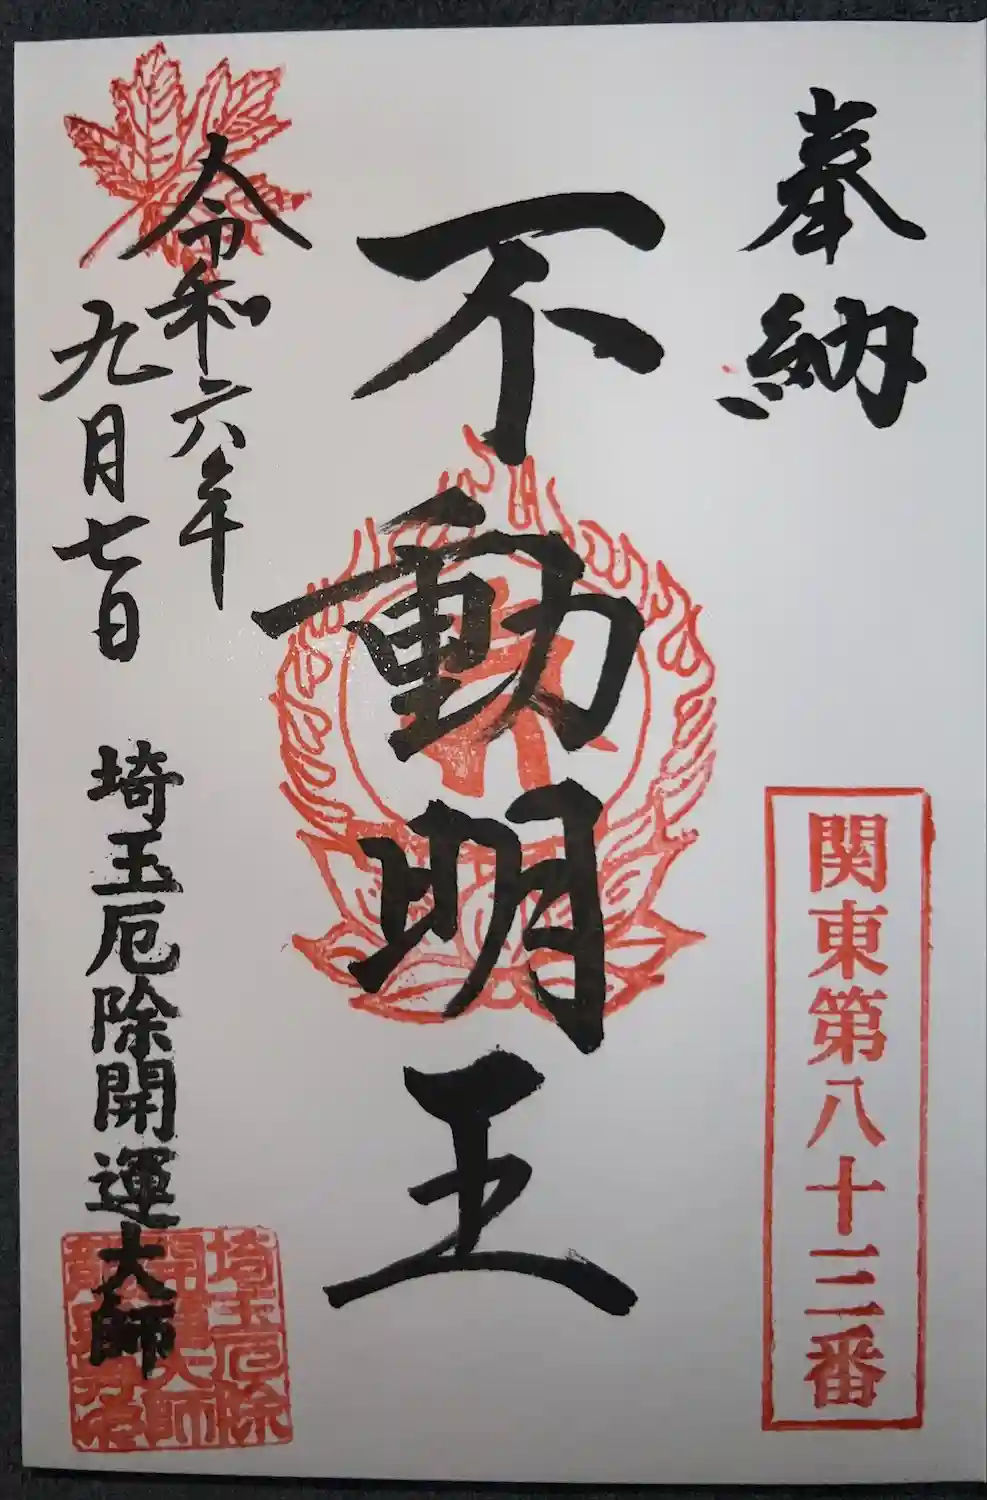 奉納
関東第八十三番
不動明王
令和六年
九月七日
埼玉厄除開運大師
埼玉厄除
開運大師